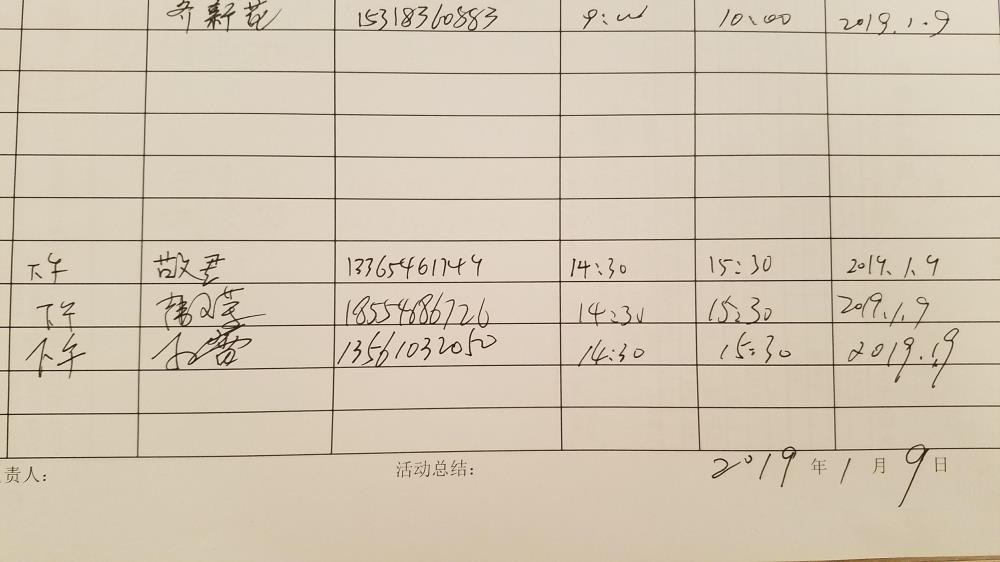 齐新花 15318360883 9:00 10:00 2019.1.9
下午 敬君 13365461749 14:30 15:30 2019.1.9
下午 18554886726 14:30 15:30 2019.1.9
下午 13561032050 14:30 15:30 2019.1.9
责人: 活动总结: 2019年1月9日